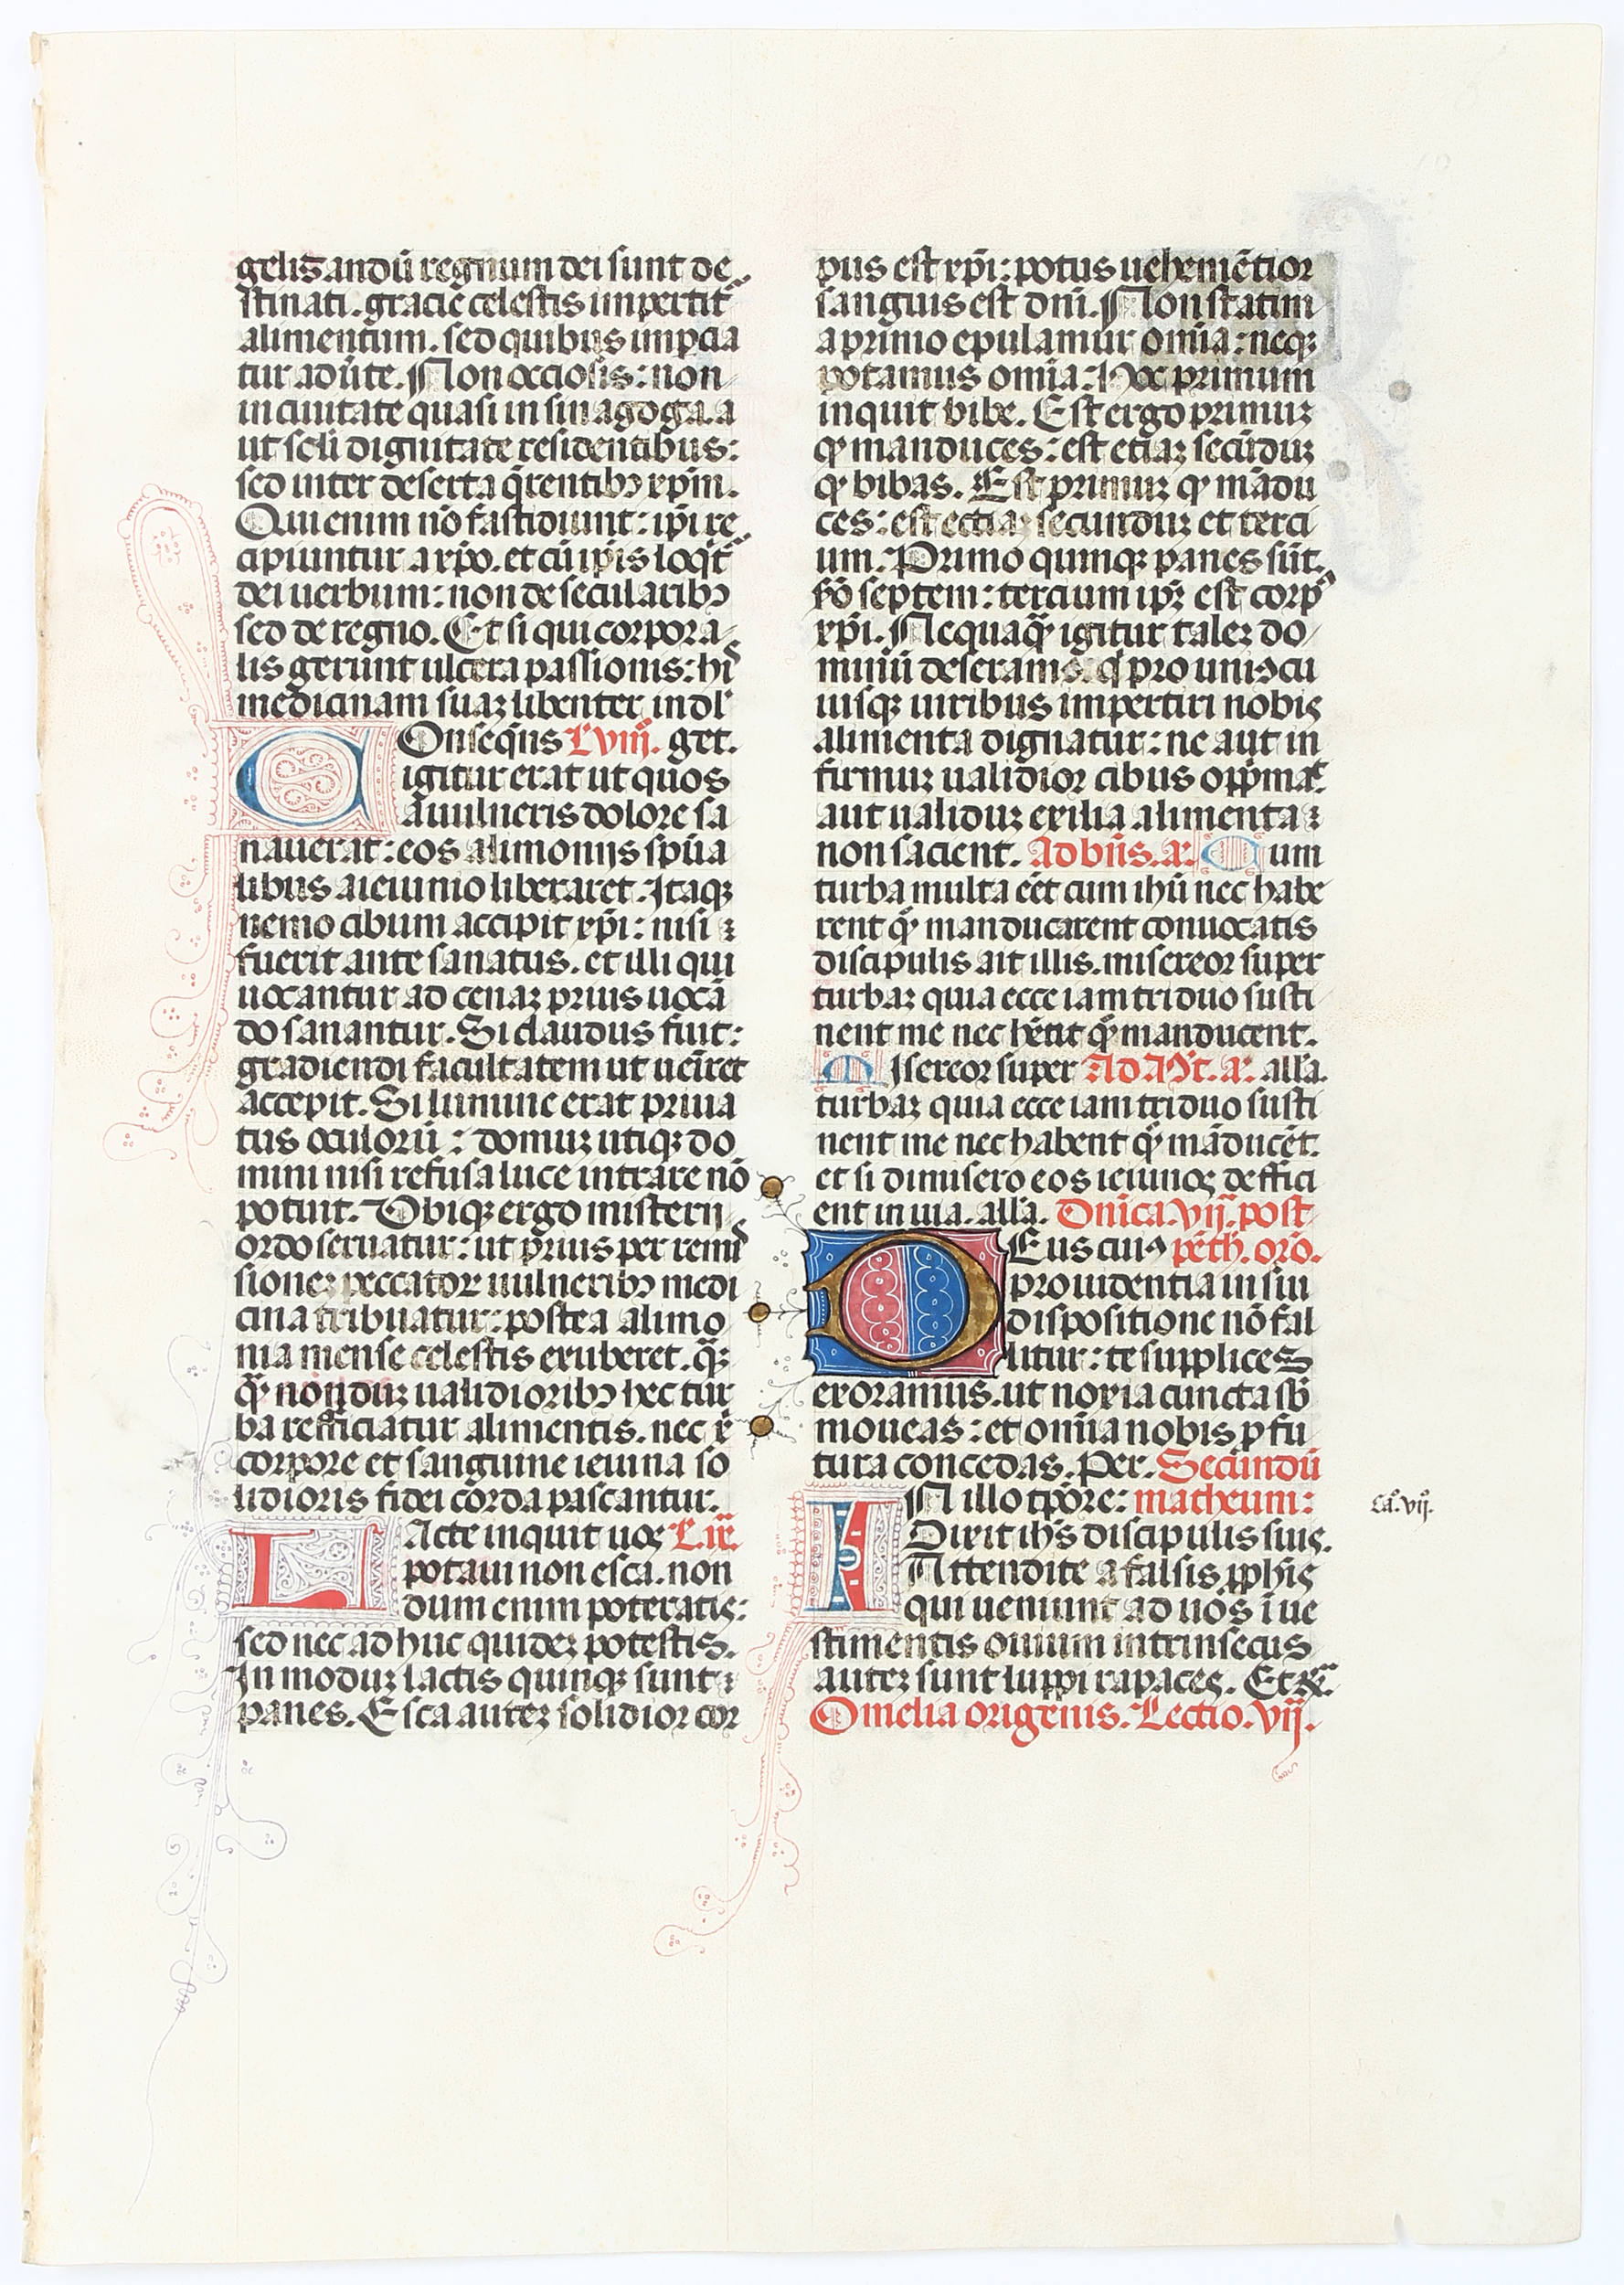 gelisandū regnum dei sunt de
stinati. gracie celestis impertit᷑
alimentum. sed quibus imp̄cia
tur adūte. Non occiosis: non
in ciuitate quasi in sinagoga. a
ut scl̄i dignitate residentibus:
sed inter deserta q̄rentibꝫ xp̄m.
Qui enim nō fastidiunt: ip̄i re
cipiuntur a xp̄o. et cū ip̄is loqit᷑
dei uerbum: non de secularibꝫ
sed de regno. Et si qui corpora
lis gerunt ulcera passionis: hi
medicinam suaꝫ libenter indl᷑
Onseq̄ns L'viii. get.
igitur erat ut quos
a uulneris dolore sa
nauerat: eos alimoniis sp̄ua
libus a ieiunio liberaret. Itaqꝫ
nemo cibum accipit xp̄i: nisi
fuerit ante sanatus. et illi qui
uocantur ad cenaꝫ prius uocā
do sanantur. Si claudus fuit:
gradiendi facultatem ut ueīret
accepit. Si lumine erat priua
tus oculorū: domuꝫ utiqꝫ do
mini nisi refusa luce intrare nō
potuit. Vbiqꝫ ergo misterii
ordo seruatur: ut prius per remis
sioneꝫ peccatoꝝ uulneribꝫ medi
cina tribuatur: postea alimo
nia mense celestis exuberet. q̄ꝫ
q̄ nonduꝫ ualidioribꝫ hec tur
ba refficiatur alimentis. nec x̄
corpore et sanguine ieiuna so
lidioris fidei corda pascantur.
LActe inquit uos L'. ix.
potaui non esca. non
dum enim poteratis:
sed nec adhuc quideꝫ potestis.
In moduꝫ lactis quinqꝫ sunt
panes. Esca auteꝫ solidior cor
pus est xp̄i: potus uehemētior
sanguis est dn̄i. Non statim
a primo epulamur om̄ia: neqꝫ
potamus om̄ia: Hoc primum
inquit bibe. Est ergo primuꝫ
qͦ manduces: est etiaꝫ secūduꝫ
qͦ bibas. Est primuꝫ qͦ mādu
ces: est ectiaꝫ secunduꝫ et terci
um. Primo quinqꝫ panes sūt.
sc̄do septem: tercium ip̄ꝫ est corpꝰ
xp̄i. Nequaq̄ igitur taleꝫ do
minū deseramꝰ. qͥ pro uniꝰcu
iusqꝫ uiribus impertiri nobis
alimenta dignatur: ne aut in
firmuꝫ ualidior cibus opp̄mat.
aut ualiduꝫ exilia alimenta
non sacient. Ad bn̄s. a. Cum
turba multa eēt cum ihū nec habe
rent qͦ manducarent conuocatis
discipulis ait illis. misereor super
turbaꝫ quia ecce iam triduo susti
nent me nec hēnt qͦ manducent.
MIsereor super Ad M̄t. a. all'a.
turbaꝫ quia ecce iam triduo susti
nent me nec habent qͦ māducēt.
et si dimisero eos ieiunos deffici
ent in uia. all'a. Dn̄ica. vii. post
DEus cuiꝰ pēth. orō.
prouidentia in sui
dispositione nō fal
litur: te supplices
exoramus. ut noxia cuncta sb̄
moueas: et om̄ia nobis ꝓfu
tura concedas. Per. Secundū
IN illo tp̄ore: matheum:
Dixit ihs̄ discipulis suis.
Attendite a falsis ꝓphīs
qui ueniunt ad uos ī ue
stimentis ouium intrinsecus
auteꝫ sunt luppi rapaces. Et
Omelia origenis. Lectio. vii.
Ca°. vii.